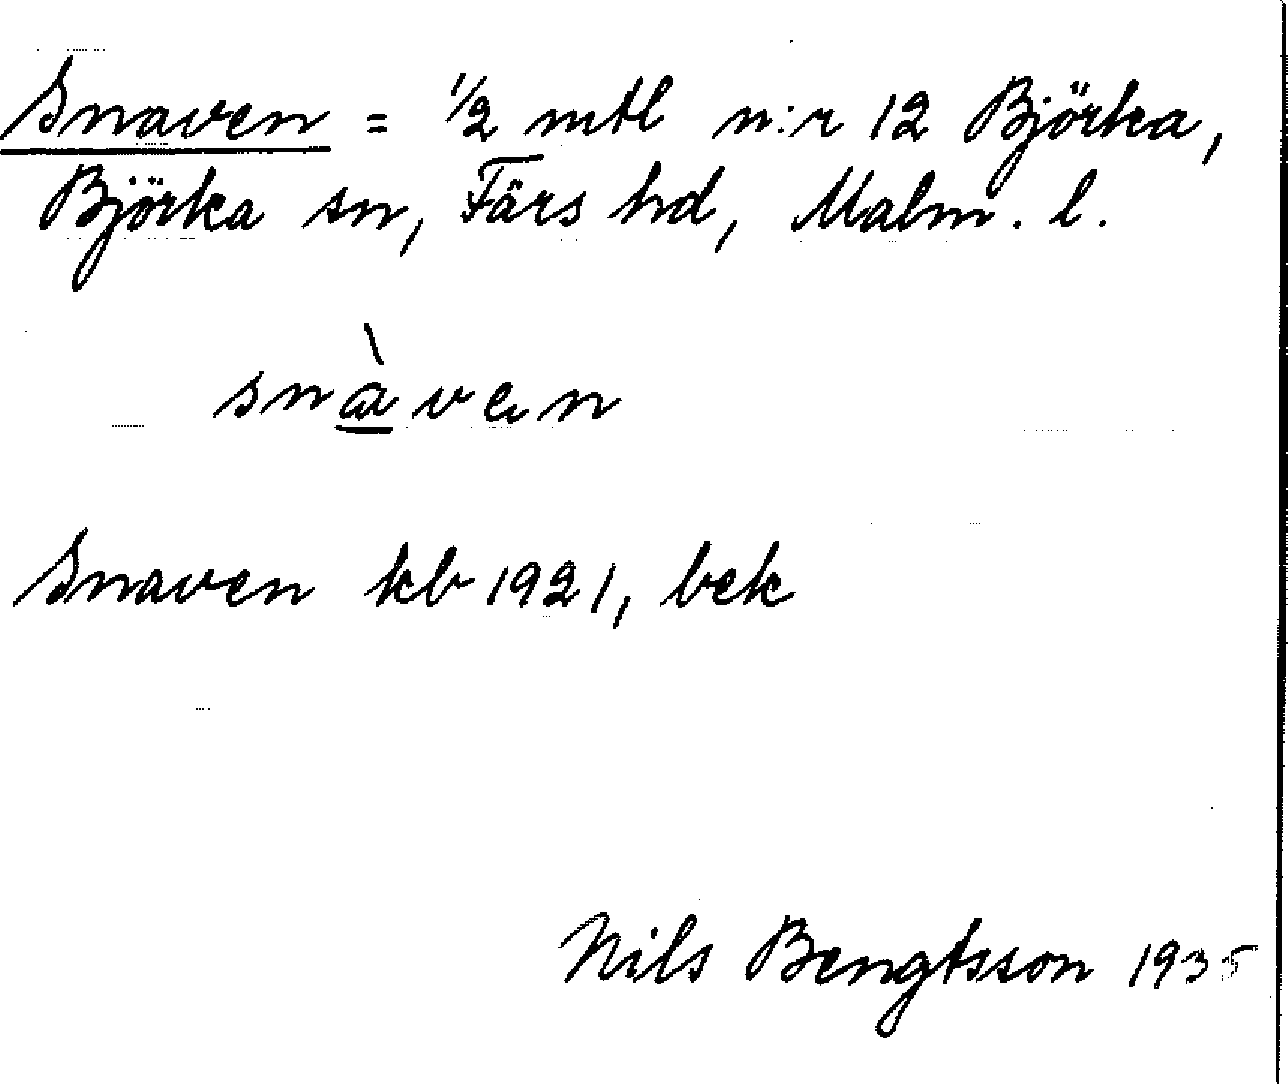 Snaven = 1/2 mtl n:r 12 Björka,
Björka sn, Färs hd, Malm. l.
snàven
Snaven kb 1921, bek
Nils Bengtsson 1935